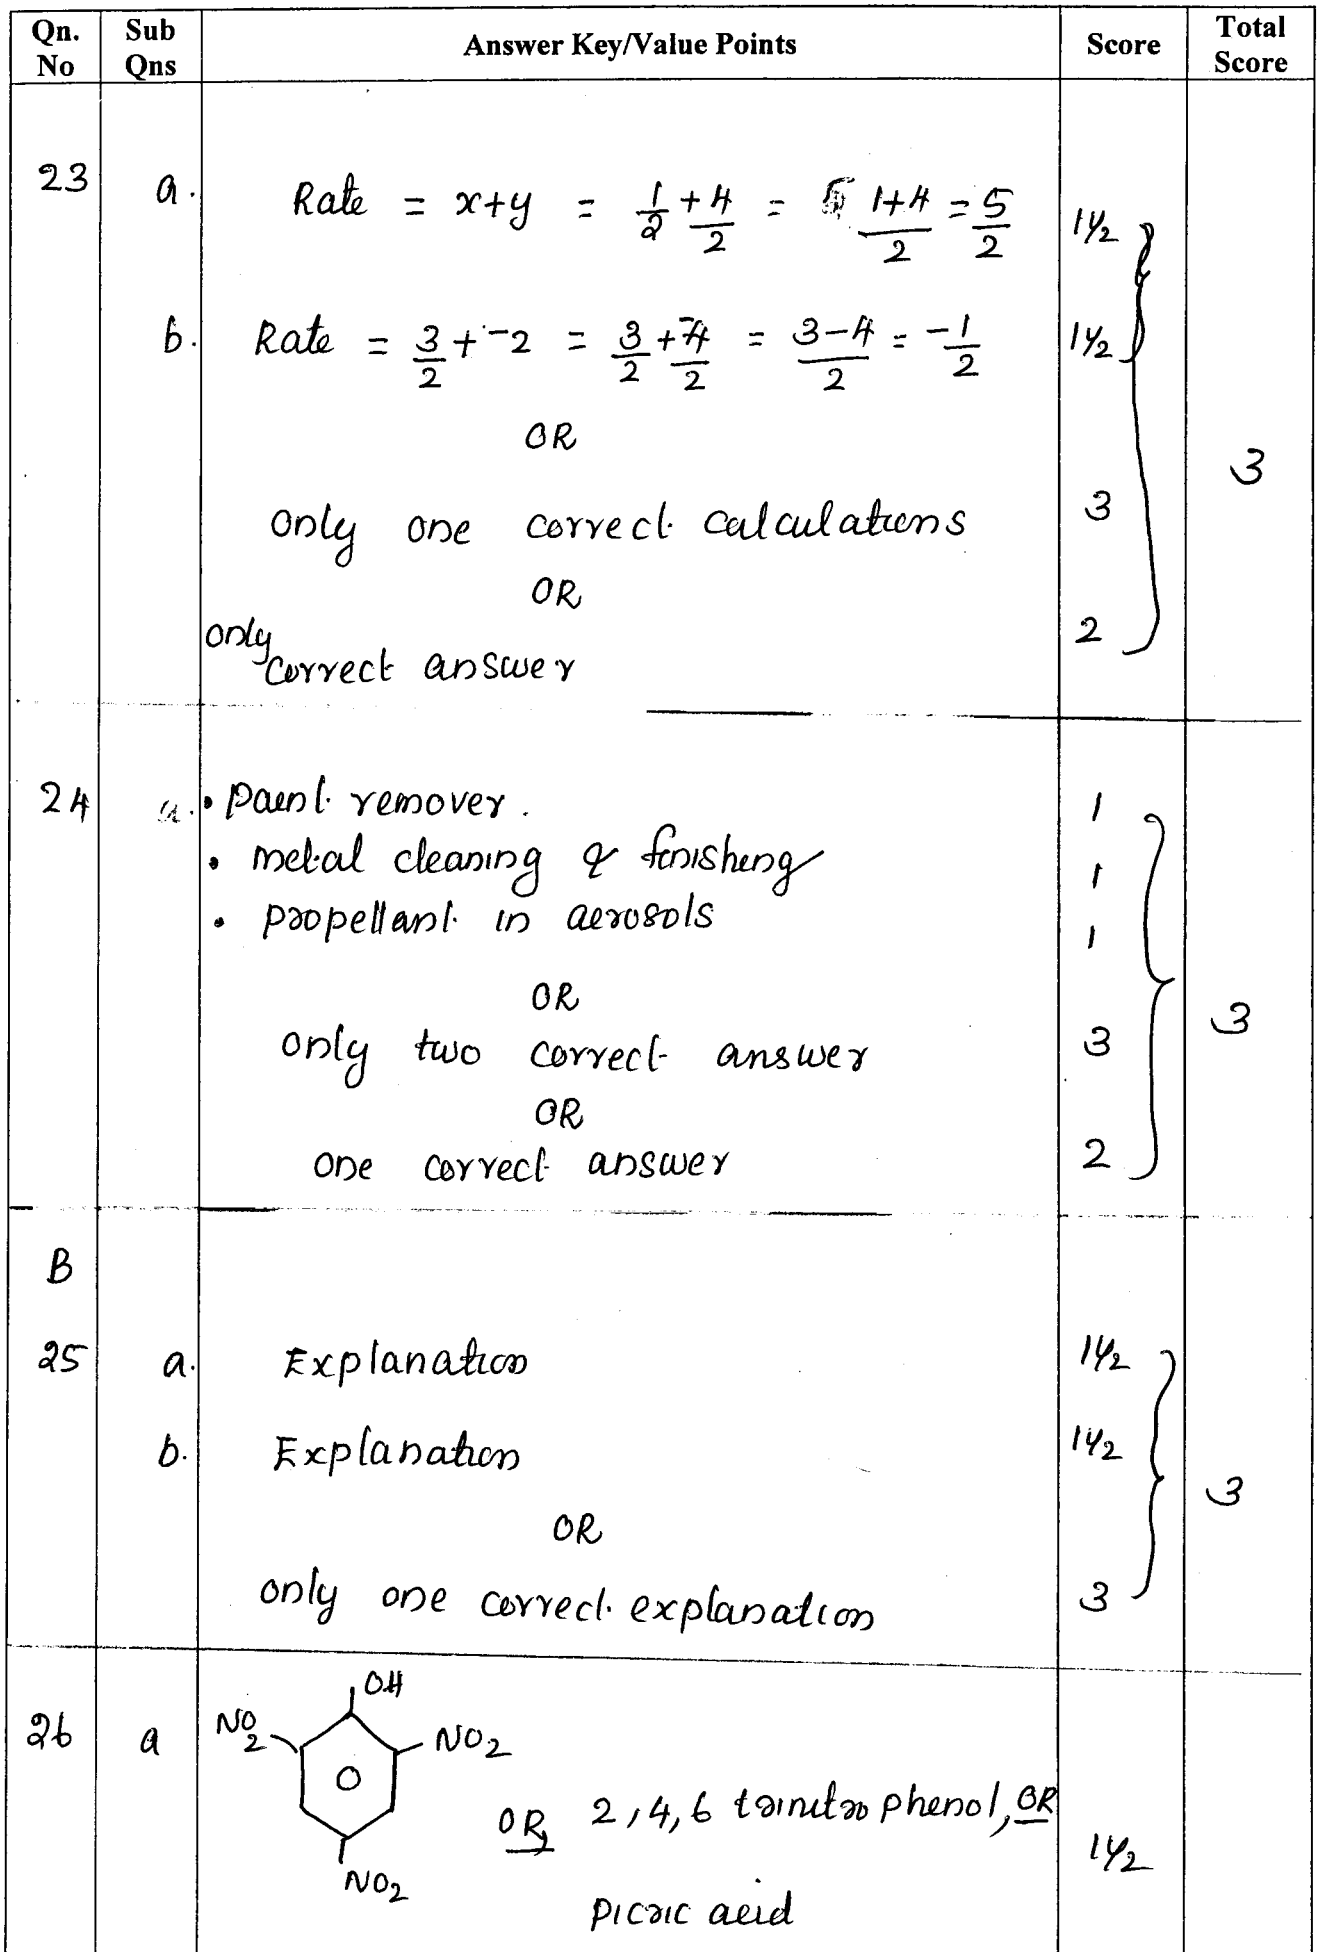 Qn. No Sub Qns Answer Key/Value Points Score Total Score
23 a. Rate = x+y = 1/2 + 4/2 = 1+4/2 = 5/2 1½
b. Rate = 3/2 + -2 = 3/2 + -4/2 = 3-4/2 = -1/2 1½
OR
only one correct calculations 3 3
OR
only correct answer 2
24 a. • Paint remover. 1
• metal cleaning & finishing 1
• propellant in aerosols 1
OR
only two correct answer 3 3
OR
one correct answer 2
B
25 a. Explanation 1½
b. Explanation 1½
3
OR
only one correct explanation 3
OH
26 a NO2 NO2
OR, 2,4,6 trinitro phenol, OR 1½
NO2
picric acid